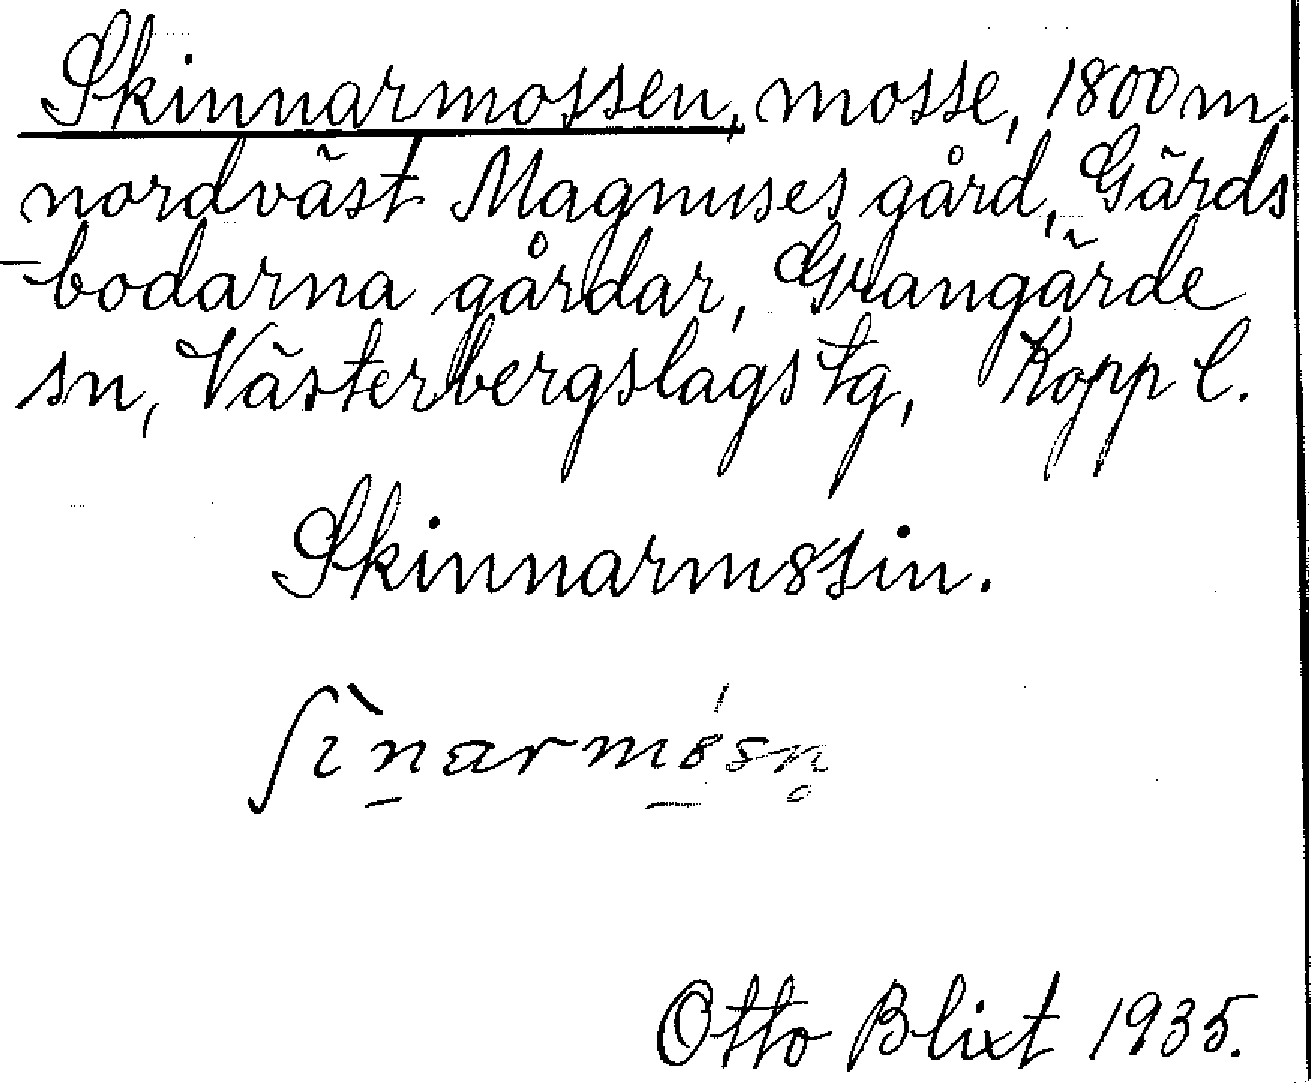 Skinnarmossen, mosse, 1800 m.
nordväst Magnuses gård, Gärds
-bodarna gårdar, Grangärde
sn, Västerbergslags tg, Kopp l.
Skinnarm8ssin.
ʃìn̠arm̠8́sn̥
Otto Blixt 1935.